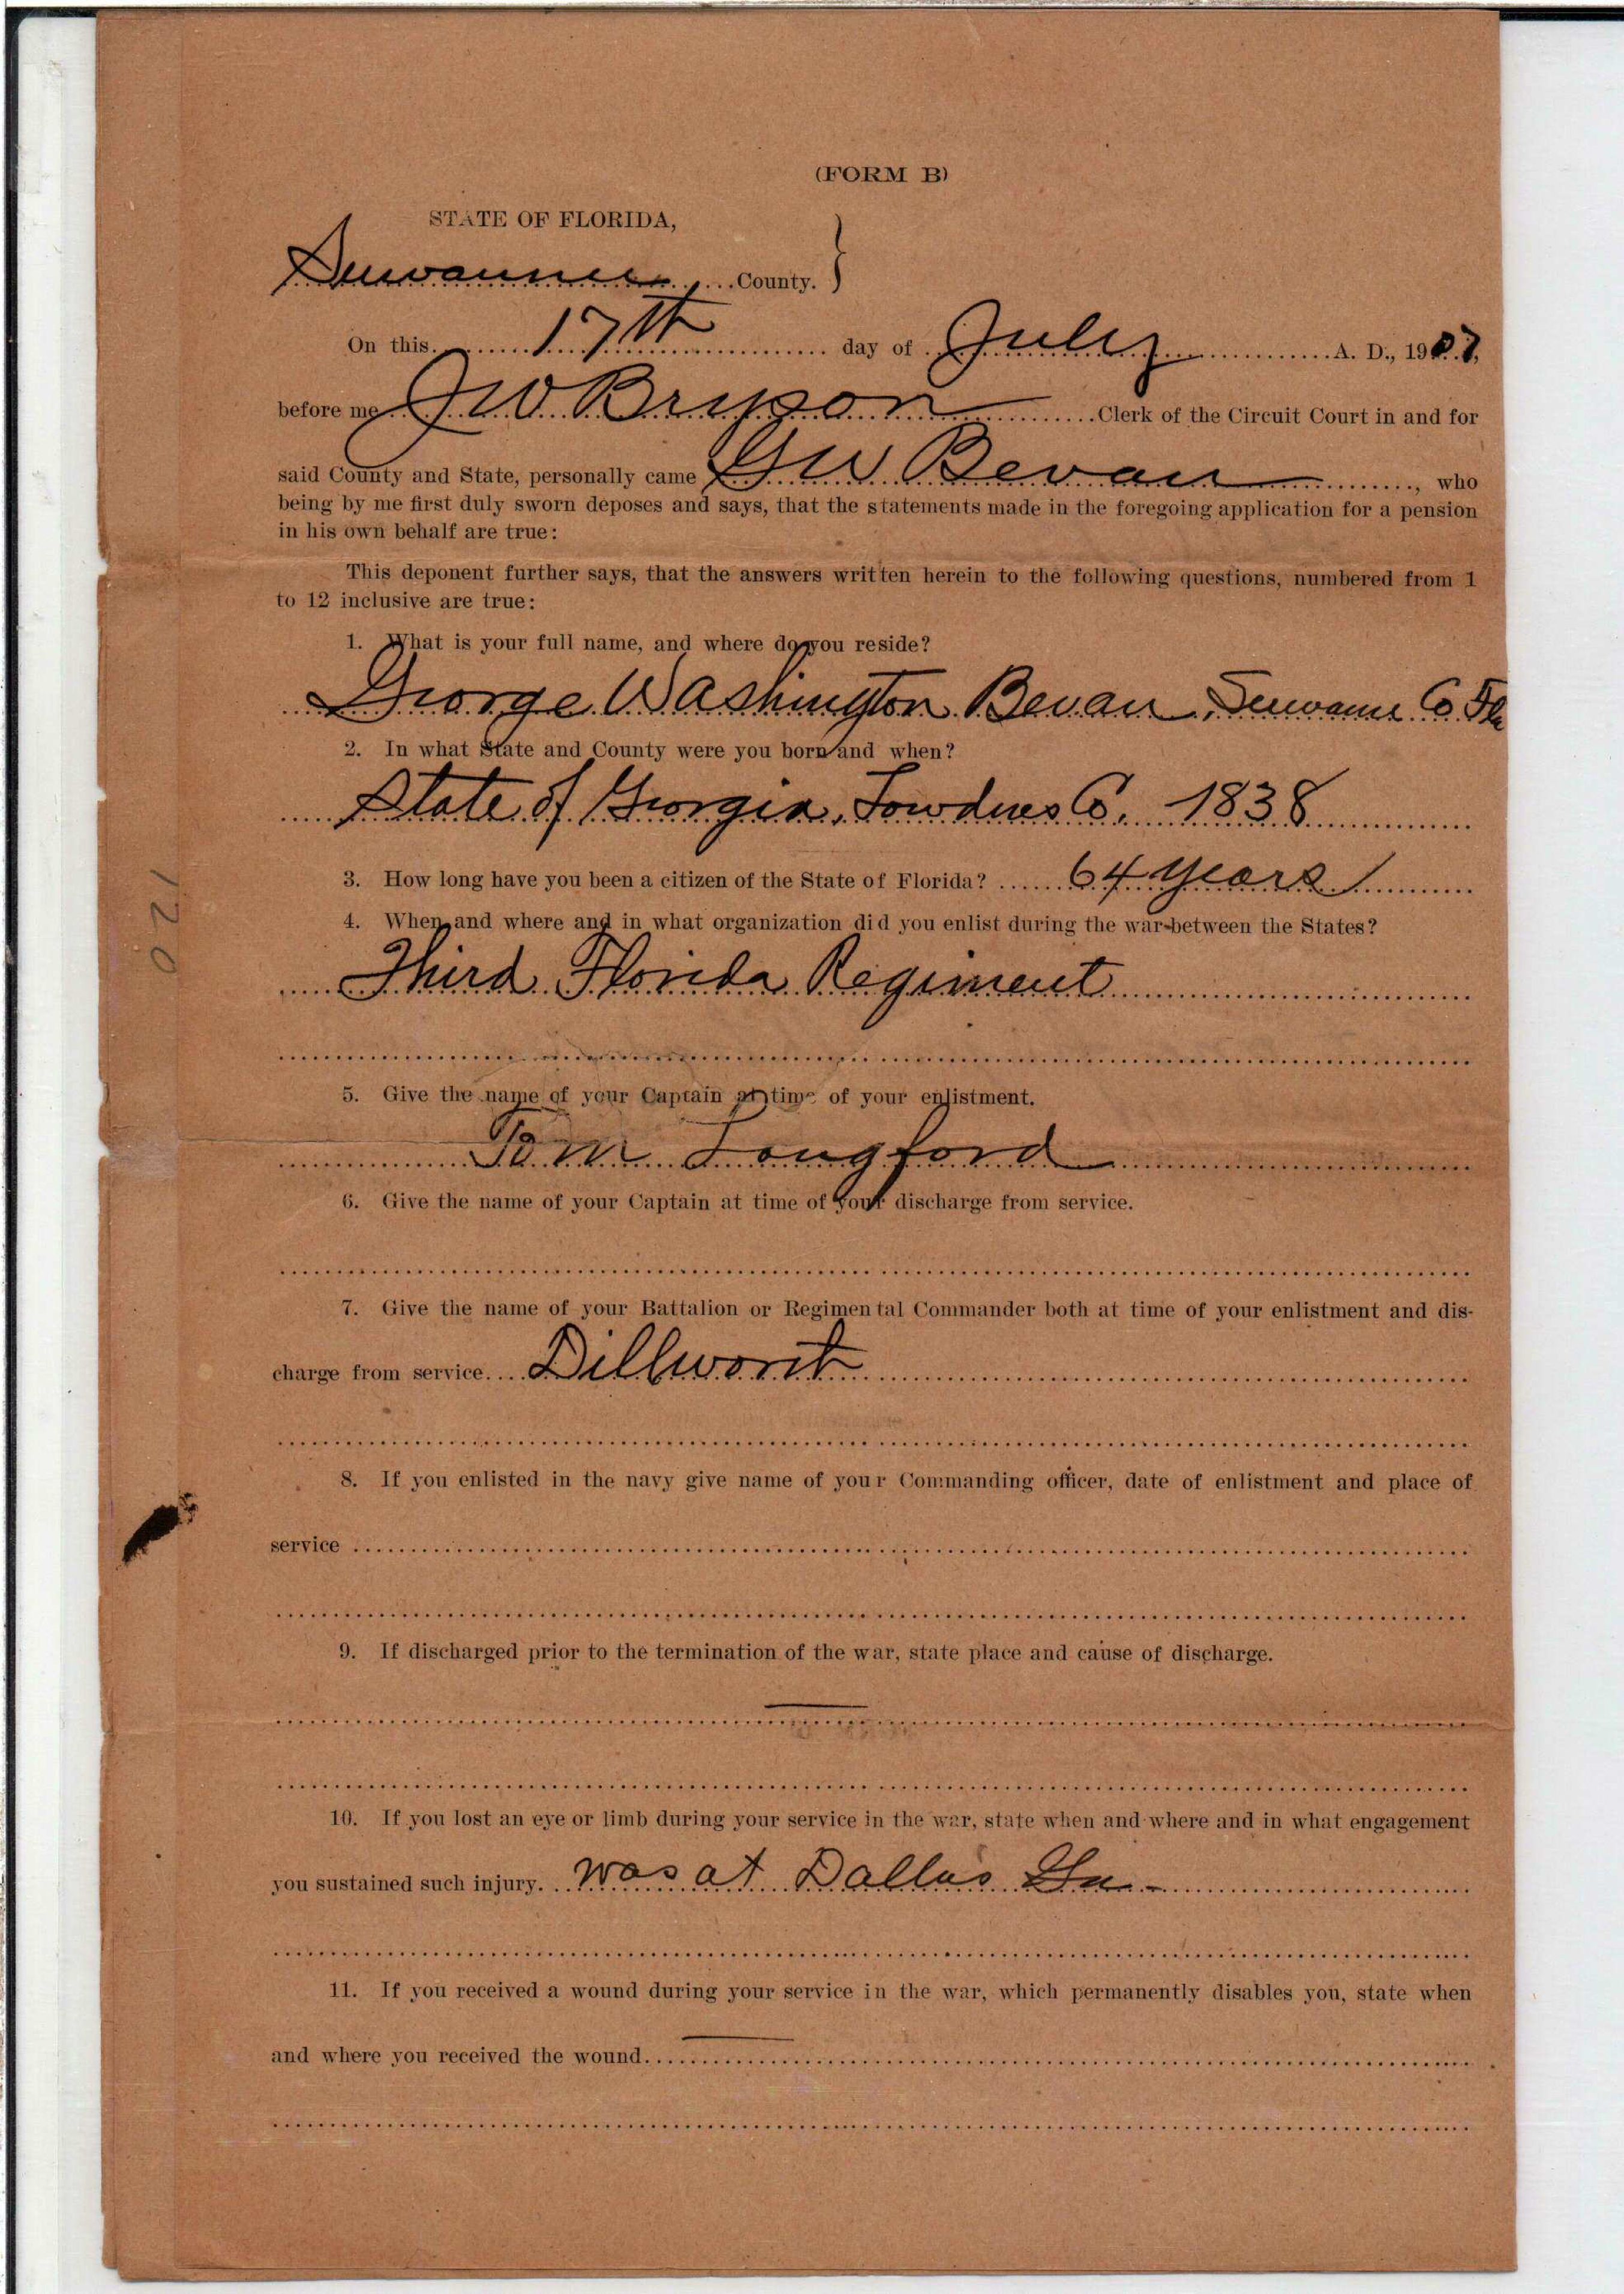 (FORM B)
STATE OF FLORIDA,
Suwannee County. }
On this 17th day of July A. D., 1907,
before me J W Bryson Clerk of the Circuit Court in and for
said County and State, personally came G W Bevan, who
being by me first duly sworn deposes and says, that the statements made in the foregoing application for a pension
in his own behalf are true:
This deponent further says, that the answers written herein to the following questions, numbered from 1
to 12 inclusive are true:
1. What is your full name, and where do you reside?
George Washington Bevan, Suwannee Co Fla
2. In what State and County were you born and when?
State of Georgia, Lowdnes Co. 1838
3. How long have you been a citizen of the State of Florida? 64 years
4. When and where and in what organization did you enlist during the war between the States?
Third Florida Regiment
5. Give the name of your Captain at time of your enlistment.
Tom Langford
6. Give the name of your Captain at time of your discharge from service.
7. Give the name of your Battalion or Regimental Commander both at time of your enlistment and dis-
charge from service. Dillworth
8. If you enlisted in the navy give name of your Commanding officer, date of enlistment and place of
service
9. If discharged prior to the termination of the war, state place and cause of discharge.
10. If you lost an eye or limb during your service in the war, state when and where and in what engagement
you sustained such injury. was at Dallas Ga
11. If you received a wound during your service in the war, which permanently disables you, state when
and where you received the wound.
120